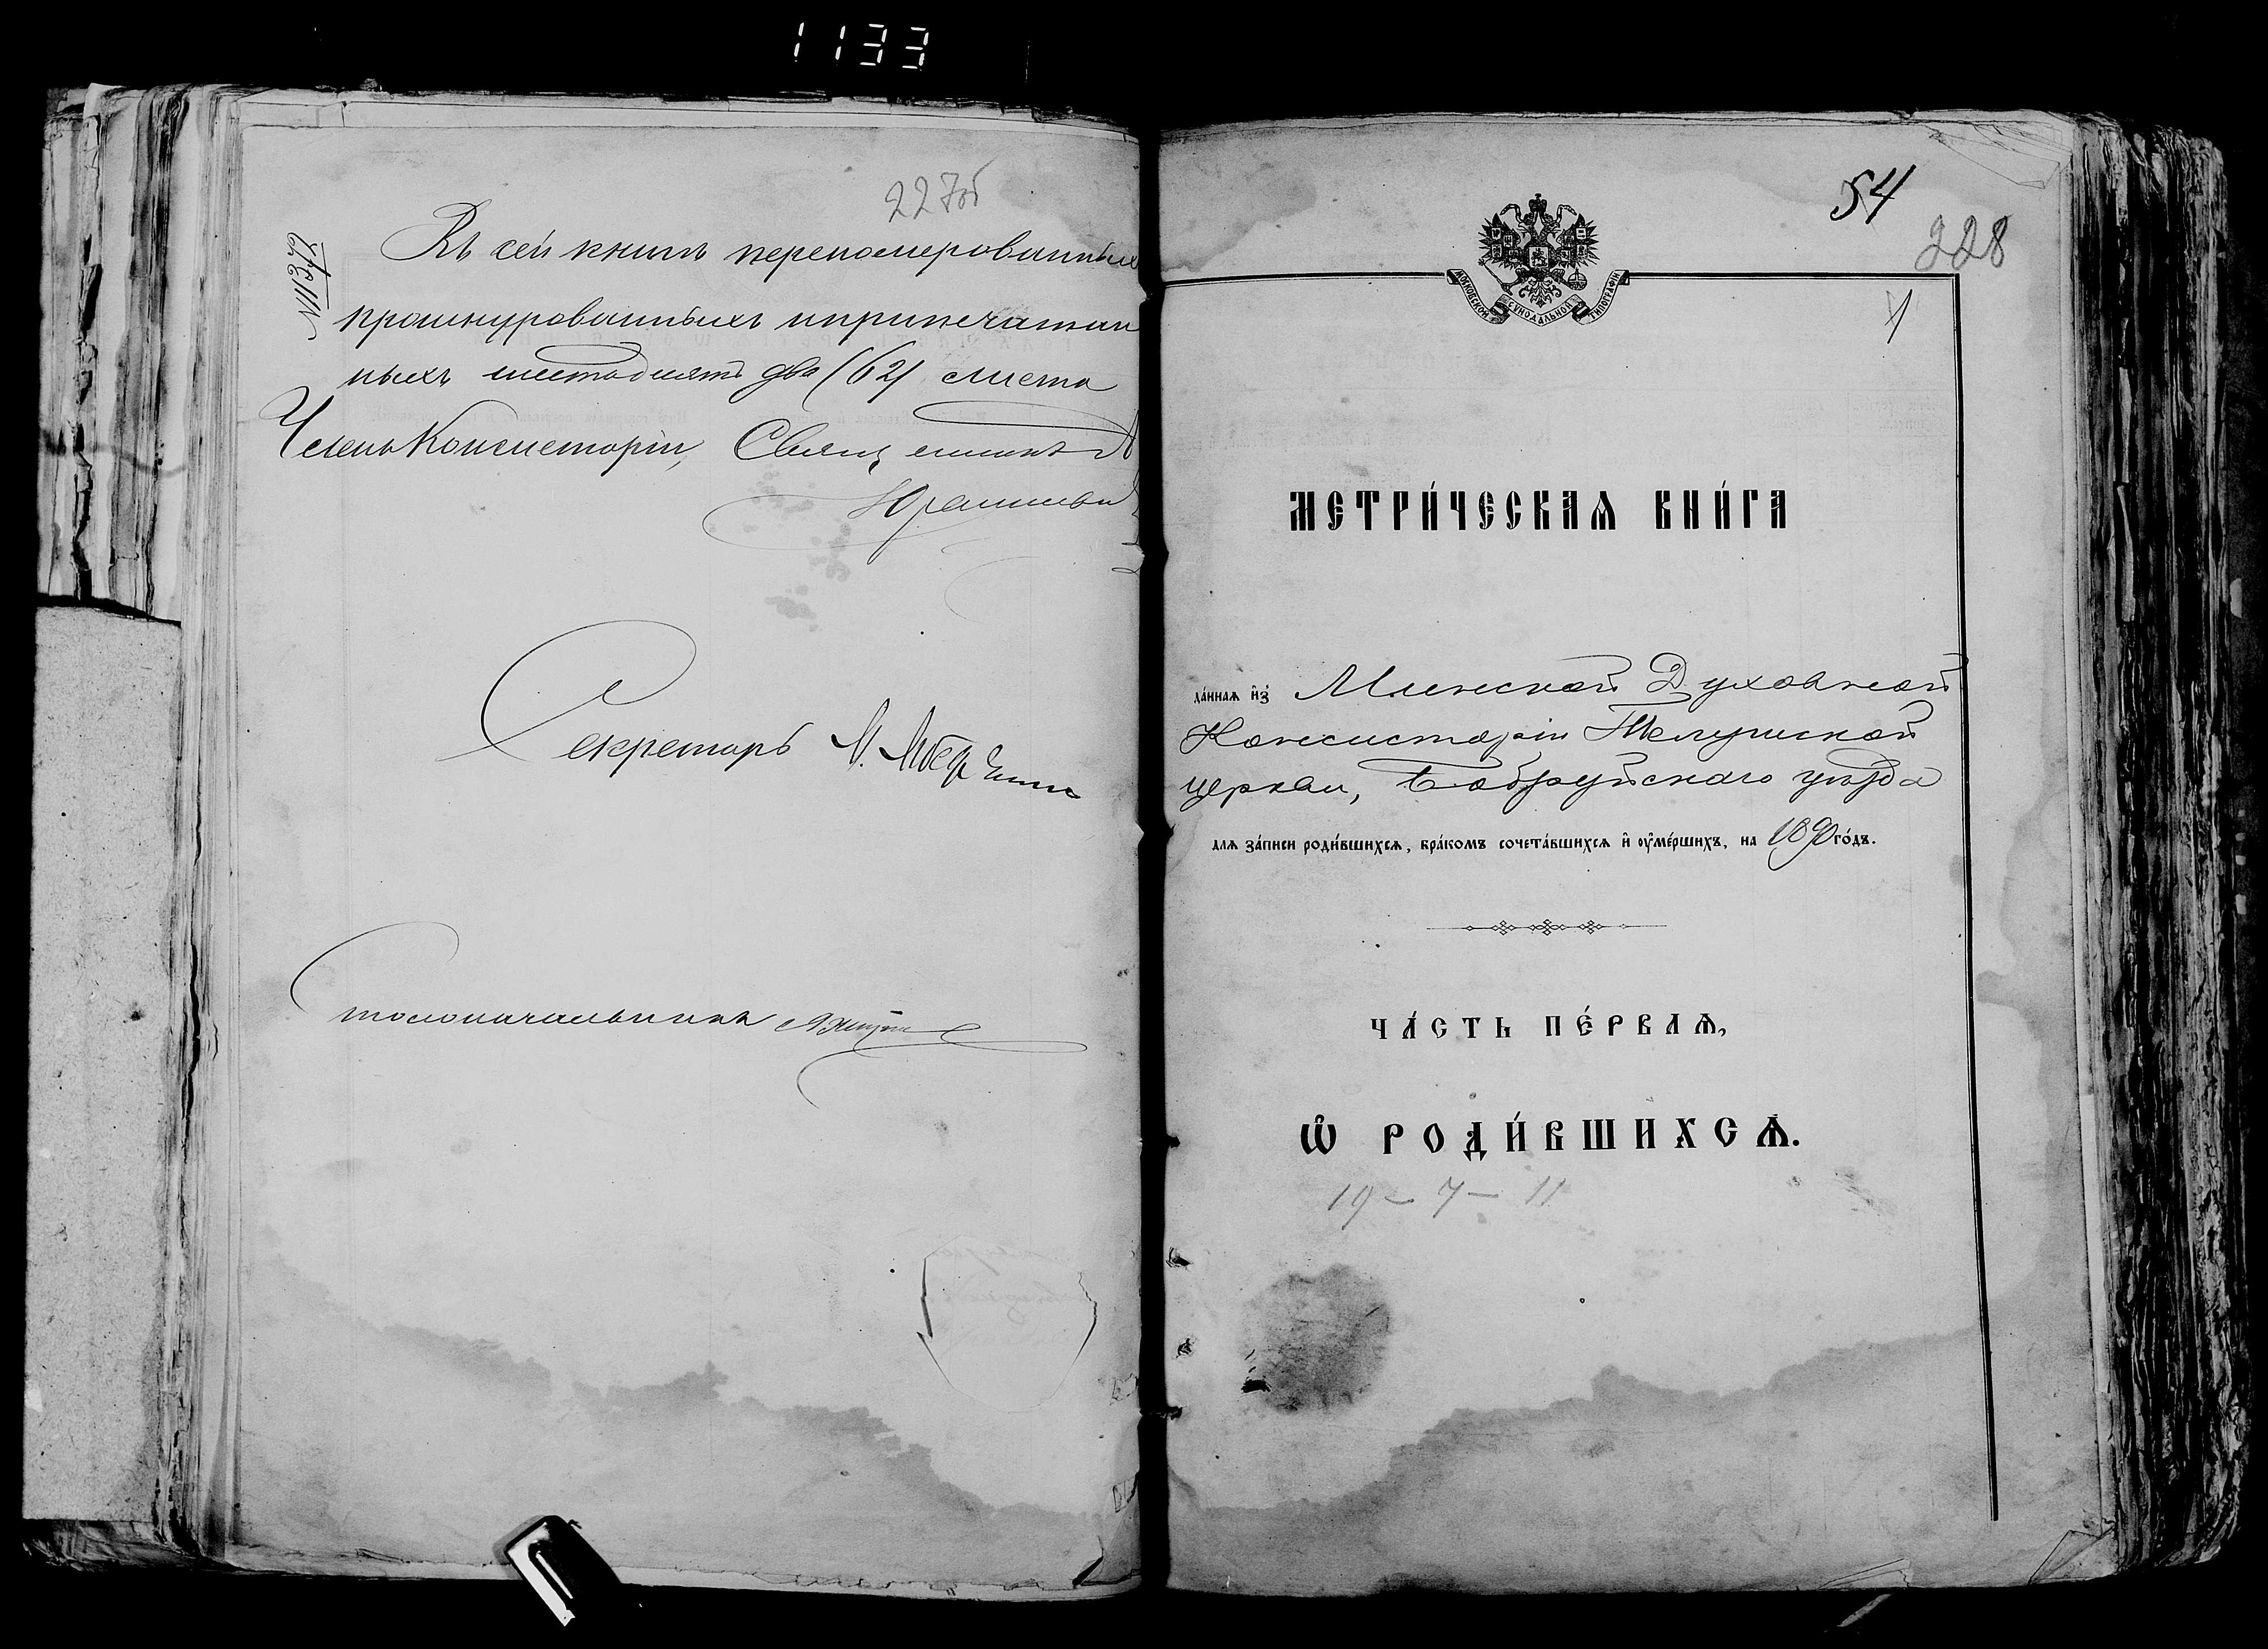 1133
227об
№11347
Въ сей книгѣ перепомерованныхъ
прошнурованныхъ и припечатан
ныхъ шестьдесятъ два (62) листа
Членъ Консисторіи, Священникъ
Секретарь
Столоначальникъ
54
228
1
МОСКОВСКОЙ СѴНОДАЛЬНОЙ ТИПОГРАФІИ
МЕТРИ́ЧЕСКАѦ КНИ́ГА
да́ннаѧ и҆зъ Минской Духовной
Консисторіи Телушской
церкви, Бобруйскаго уѣзда
для за́писи роди́вшихсѧ, бра́комъ сочета́вшихсѧ и҆ оу҆ме́ршихъ, на 1890 го́дъ.
ЧА́СТЬ ПЕ́РВАѦ,
Ѽ РОДИ́ВШИХСѦ.
19 - 7 - 11